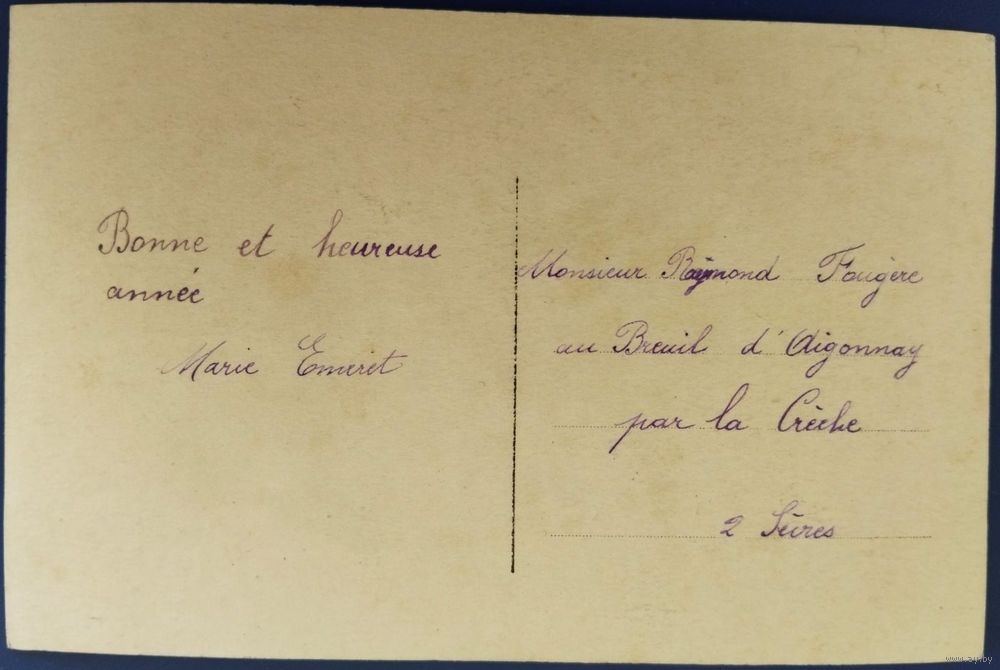 Bonne et heureuse
année
Marie Emeret
Monsieur Raymond Fougère
au Breuil d'Aigonnay
par la Crèche
2 Sèvres